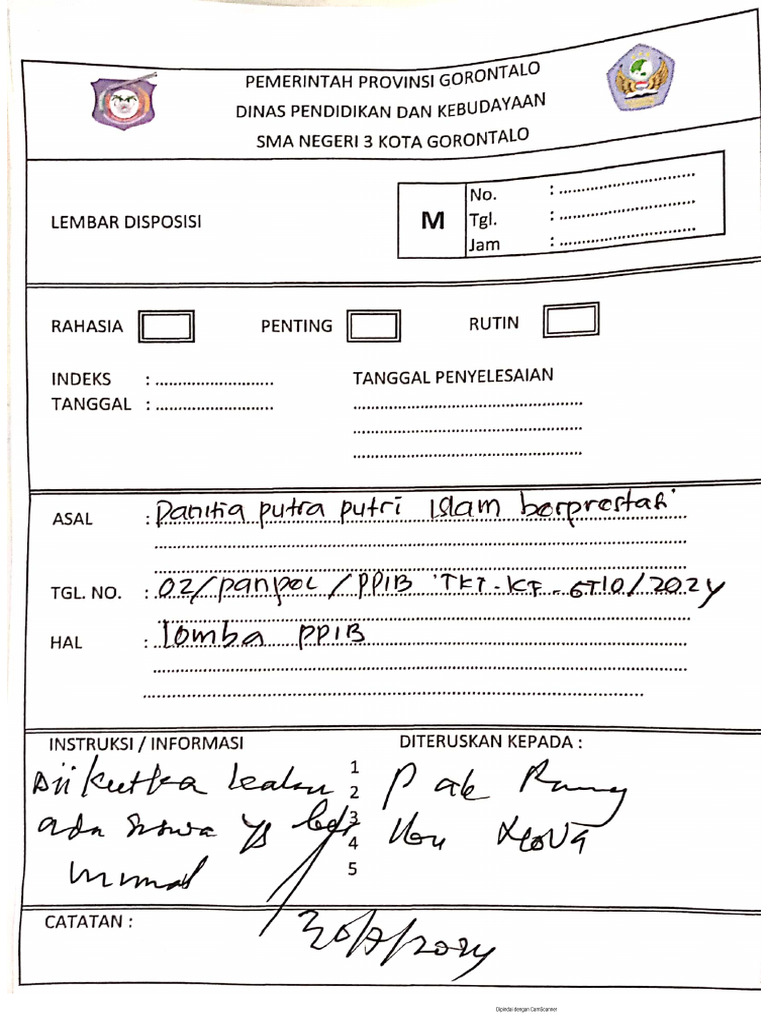 PEMERINTAH PROVINSI GORONTALO
DINAS PENDIDIKAN DAN KEBUDAYAAN
SMA NEGERI 3 KOTA GORONTALO
LEMBAR DISPOSISI
M
No. : ........................
Tgl. : ........................
Jam : ........................
RAHASIA PENTING RUTIN
INDEKS : ........................
TANGGAL : ........................
TANGGAL PENYELESAIAN
ASAL : Panitia putra putri Islam berprestasi
TGL. NO. : 02/panpel/PPIB
HAL : lomba PPIB
INSTRUKSI / INFORMASI
Diikutka kalau
ada siswa yg ber
minat
DITERUSKAN KEPADA :
1
2
3
4
5
Pak
CATATAN :
Dipindai dengan CamScanner